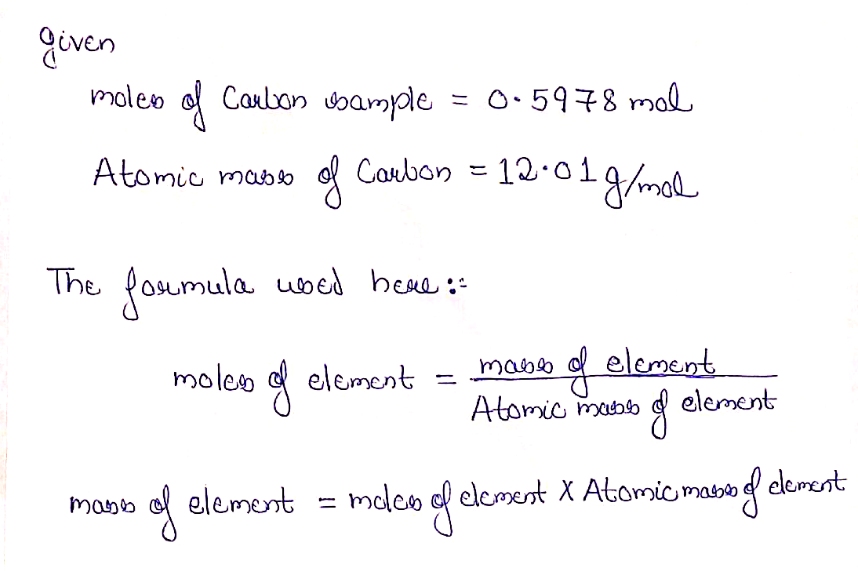 given
moles of Carbon sample = 0.5978 mol
Atomic mass of Carbon = 12.01 g/mol
The formula used here :-
moles of element = mass of element / Atomic mass of element
mass of element = moles of element X Atomic mass of element